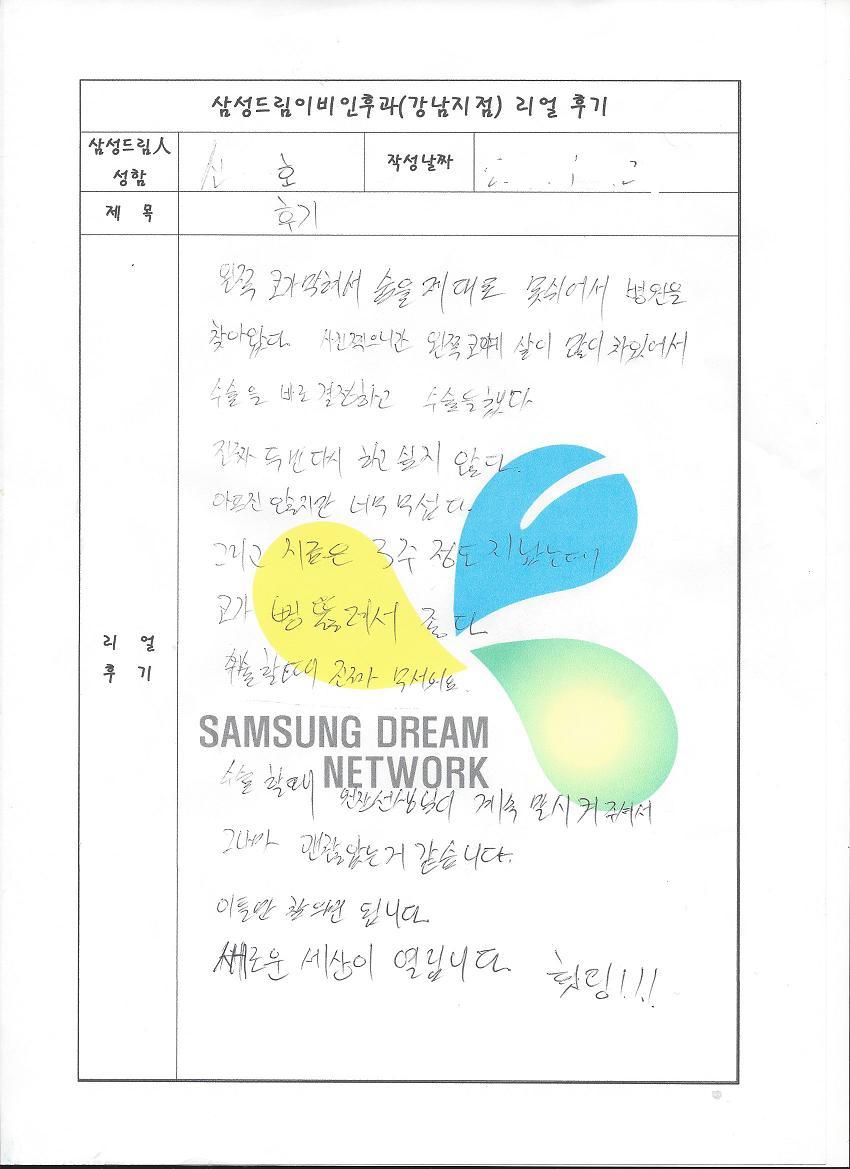 삼성드림이비인후과(강남지점) 리얼 후기
삼성드림人 성함
신 호
작성날짜
제 목
후기
리 얼
후 기
왼쪽 코가막혀서 숨을 제대로 못쉬어서 병원을
찾아왔다. 사진찍으니간 왼쪽코에 살이 많이 차있어서
수술을 바로결정하고 수술을했다
진짜 두번다시 하고 싶지 않다.
아프진 않치만 너무 무섭다.
그리고 치료은 3주 정도 지났는데
코가 뻥 뚫려서 좋다
수술할때 진짜 무서워요.
SAMSUNG DREAM
NETWORK
수술 할때 원장선생님이 계속 말시켜주셔서
그나마 괜찮았는거 같습니다.
이틀만 참으면 됩니다.
새로운 세상이 열립니다. 힛팅!!!